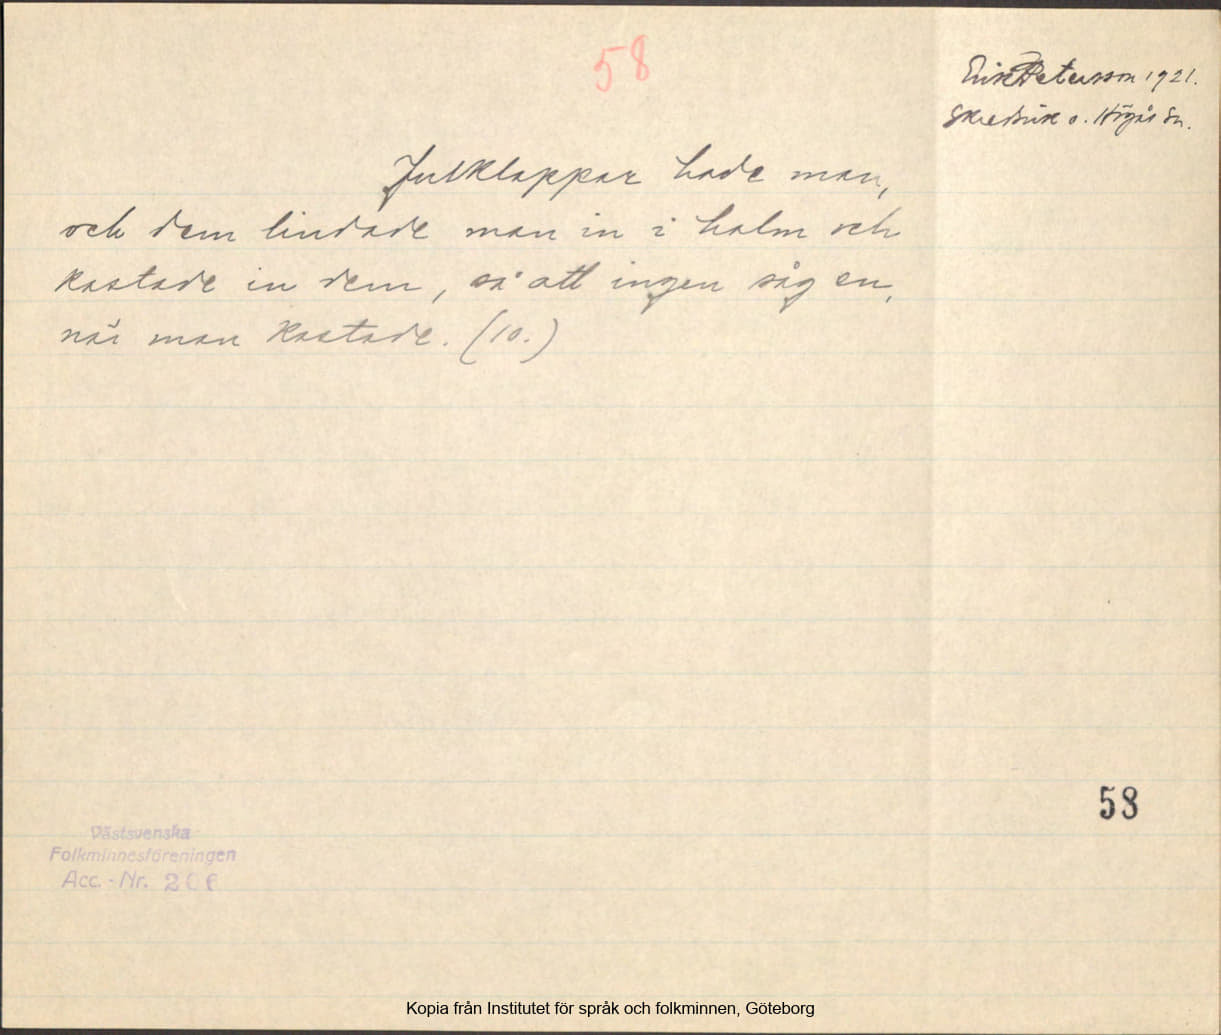 58
Erik Petersson 1921.
Skredsvik o. Högås sn.
Julklappar hade man,
och dem lindade man in i halm och
kastade in dem, så att ingen såg en,
när man kastade. (10.)
58
Västsvenska
Folkminnesföreningen
Acc.-Nr. 206
Kopia från Institutet för språk och folkminnen, Göteborg